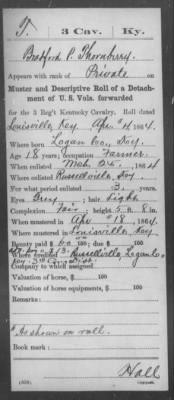 T. 3 Cav. Ky.
Bradford P. Thornberry.
Appears with rank of Private on
Muster and Descriptive Roll of a Detach-
ment of U. S. Vols. forwarded
for the 3 Reg't Kentucky Cavalry. Roll dated
Louisville, Key, Apr 1864.
Where born Logan Co., Ky.
Age 18 years; occupation Farmer.
When enlisted Mch. 24, 1864
Where enlisted Russellville, Ky.
For what period enlisted 3 years.
Eyes Grey; hair Light
Complexion Fair; height 5 ft. 8 in.
When mustered in Apr 18, 1864.
Where mustered in Louisville, Ky
Bounty paid $ 60 /100; due $ /100
Where credited Russellville, Logan Co
Company to which assigned
Valuation of horse, $ /100
Valuation of horse equipments, $ /100
Remarks:
*As shown on roll.
Book mark:
Hall
Copyist.